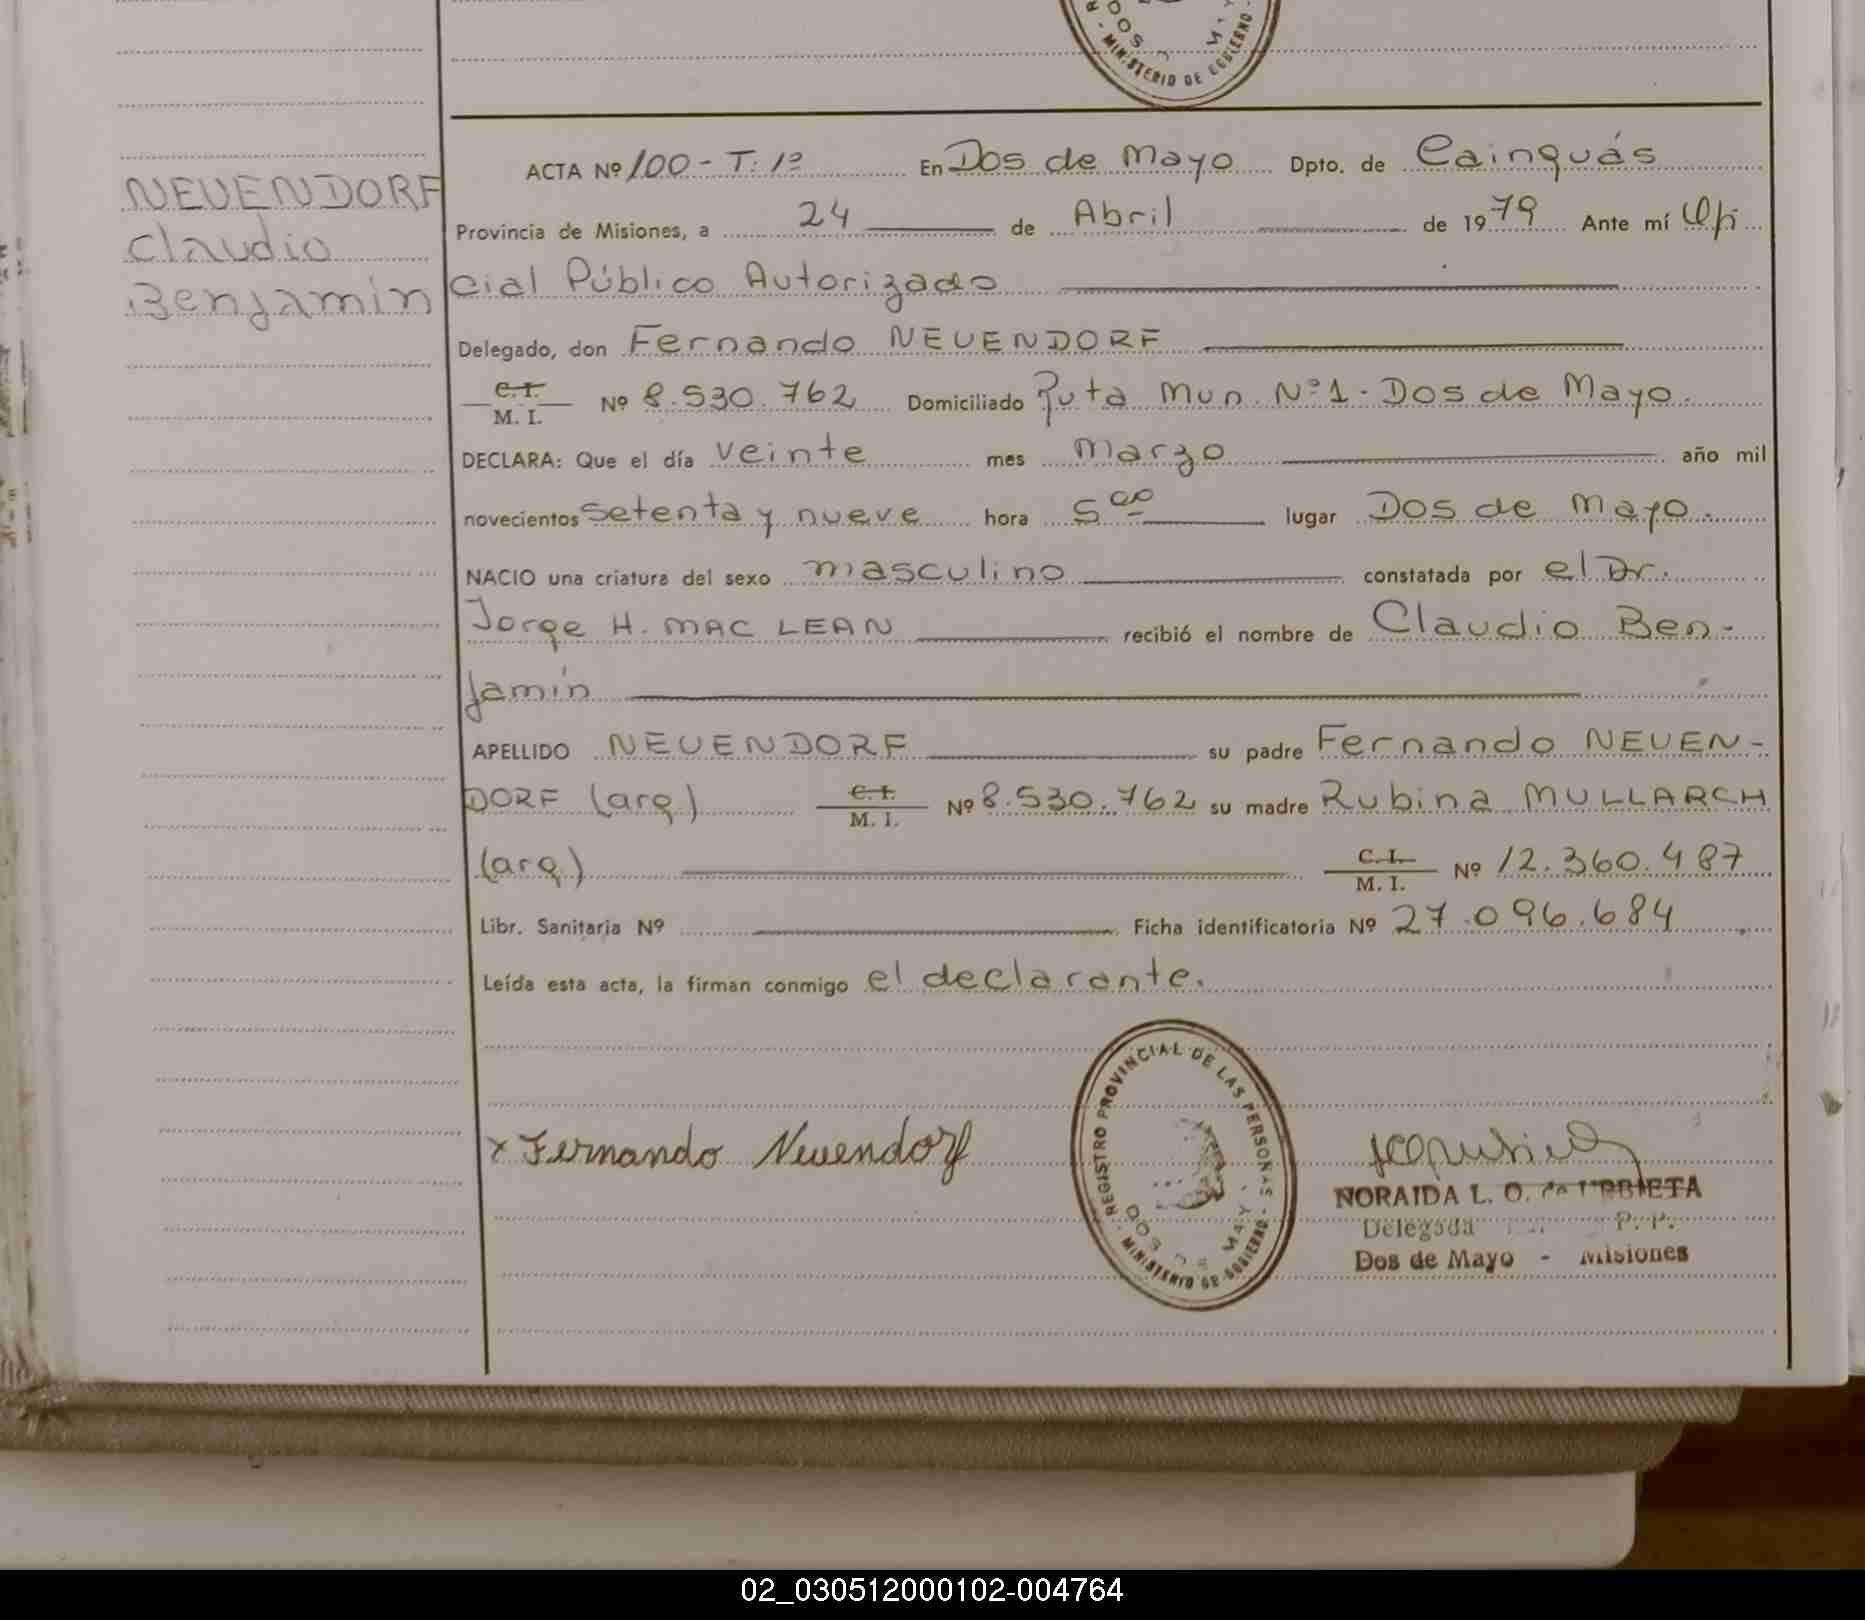 NEUENDORF
Claudio
Benjamín
ACTA Nº 100 - T. 1º En Dos de Mayo Dpto. de Cainguás
Provincia de Misiones, a 24 de Abril de 1979 Ante mí Ofi
cial Público Autorizado
Delegado, don Fernando NEUENDORF
C. I.
M. I. Nº 8.530.762 Domiciliado Ruta Mun. Nº 1 - Dos de Mayo.
DECLARA: Que el día veinte mes marzo año mil
novecientos setenta y nueve hora 5 00 lugar Dos de Mayo.
NACIO una criatura del sexo masculino constatada por el Dr.
Jorge H. MAC LEAN recibió el nombre de Claudio Ben-
jamín
APELLIDO NEUENDORF su padre Fernando NEUEN-
DORF (arg.) C. I. M. I. Nº 8.530.762 su madre Rubina MULLARCH
(arg.) C. I. M. I. Nº 12.360.487
Libr. Sanitaria Nº Ficha identificatoria Nº 27.096.684
Leída esta acta, la firman conmigo el declarante.
x Fernando Neuendorf
REGISTRO PROVINCIAL DE LAS PERSONAS - MINISTERIO DE GOBIERNO -
DOS DE MAYO
NORAIDA L. O. de URBIETA
Delegada P. P.
Dos de Mayo - Misiones
02_030512000102-004764